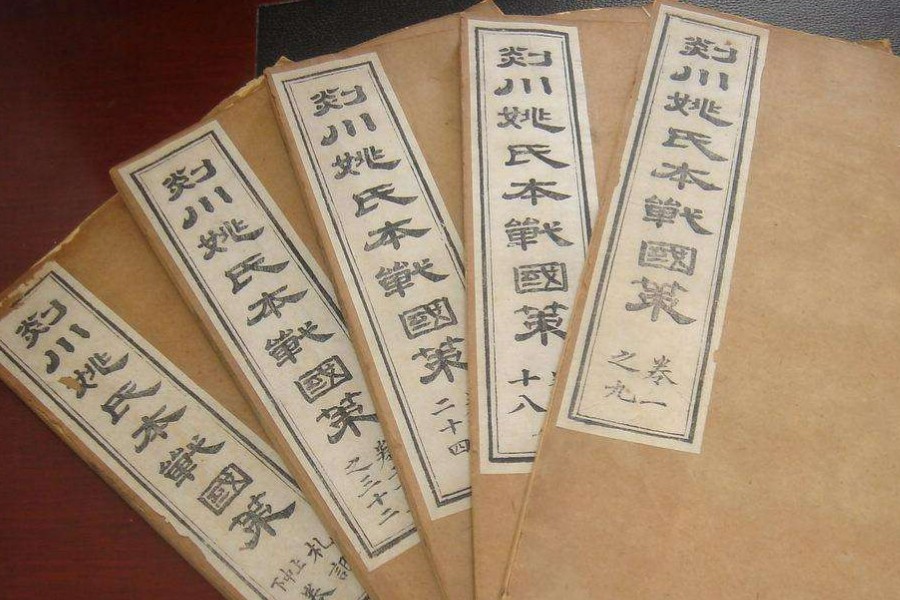 剡川姚氏本戰國策
卷一
之九
剡川姚氏本戰國策
十八
剡川姚氏本戰國策
二十四
剡川姚氏本戰國策
卷
之三十二
剡川姚氏本戰國策
札記
上中下
卷